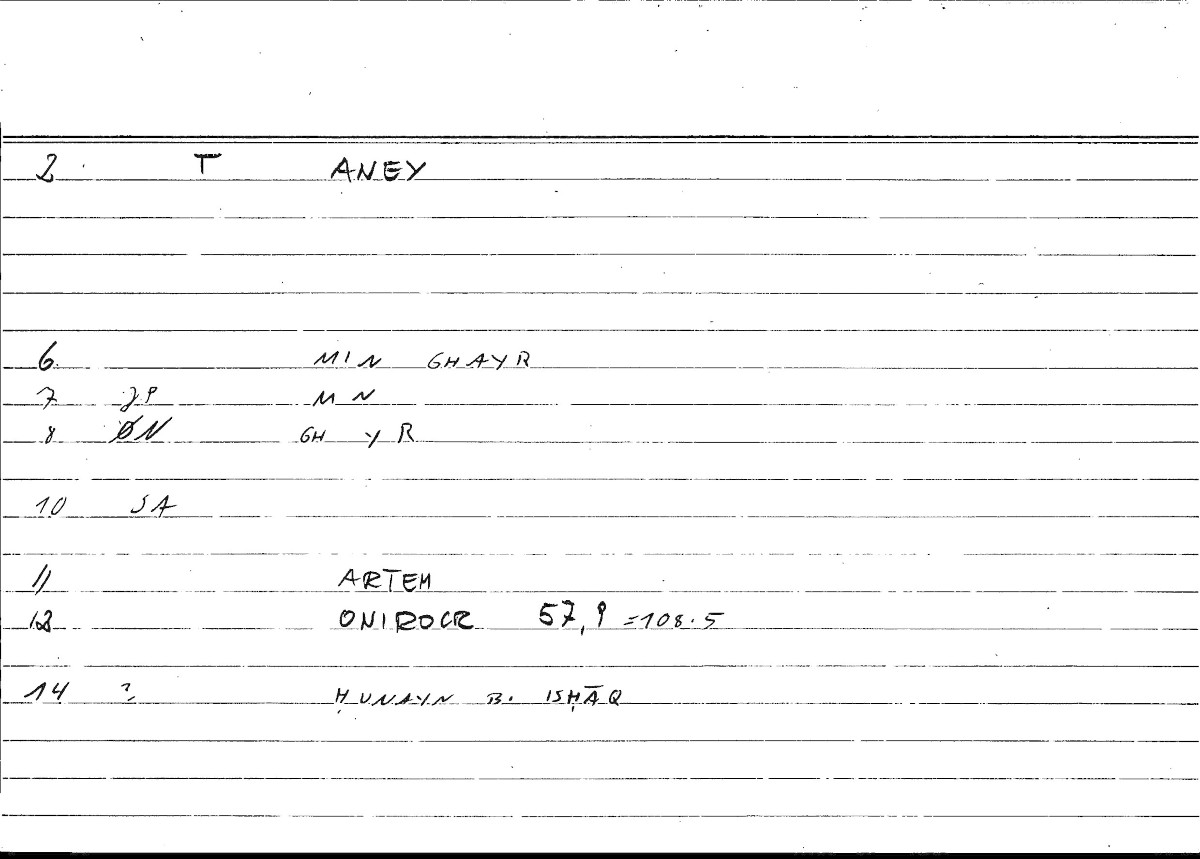 2 T ANEY
6 MIN GHAYR
7 JP M N
8 ØN GH Y R
10 SA
11 ARTEM
12 ONIROCR 57,9 =108.5
14 ? ḤUNAYN B. ISḤĀQ